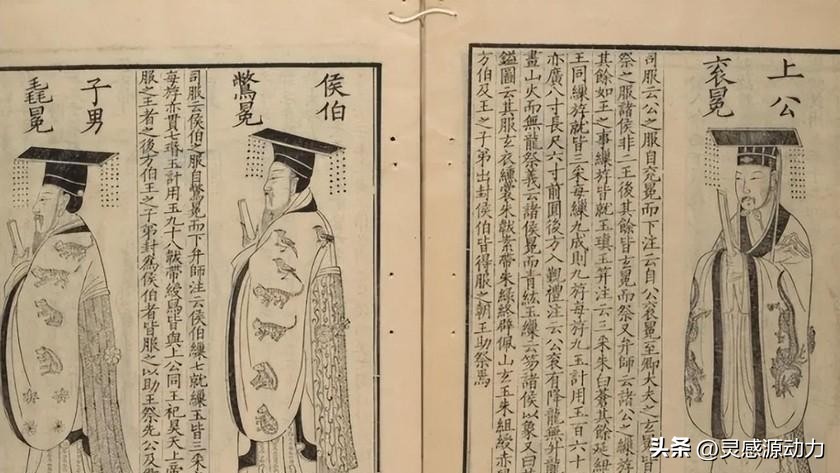 上公
衮冕
司服云公之服自衮冕而下注云自公衮冕至卿大夫之玄冕皆
祭之服諸侯非二王後其餘皆玄冕而祭又弁師云諸公之繅斿
其餘如王之事繅斿皆就玉瑱玉笄注云三采朱白蒼其餘延紐
王同繅斿就皆三采每繅九成則九斿每斿九玉計用玉百六十
亦廣八寸長尺六寸前圓後方入覲禮注云公衮有降龍無升龍
畫山火而無龍祭義云諸侯冕而青紘玉繅云笏諸侯以象又曰
鎰圖云其服玄衣纁裳朱韍素帶朱綠終辟佩山玄玉朱組綬赤
方伯及王之子弟出封侯伯皆得服之朝王助祭焉
侯伯
鷩冕
司服云侯伯之服自鷩冕而下弁師注云侯伯繅七就繅玉皆三采
每斿亦貫七玉計用玉九十八韍帶綬舄皆與上公同王祀昊天上帝
服之王者之後方伯王之子弟封爲侯伯者皆服之以助王祭先公及
子男
毳冕
头条 @灵感源动力